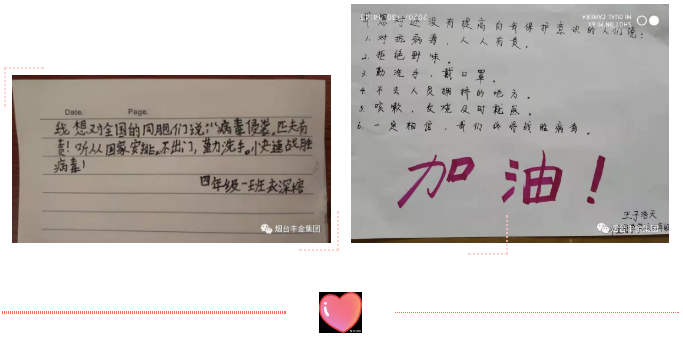 Date. Page.
我想对全国的同胞们说:"病毒侵袭,匹夫有
责!听从国家安排。不出门,勤洗手。小快速战胜
病毒!
四年级一班
烟台丰金集团
我想对还没有提高自我保护意识的人们说:
1. 对抗病毒,人人有责。
2. 拒绝野味。
3. 勤洗手,戴口罩。
4. 不去人员拥挤的地方。
5. 咳嗽、发烧及时就医。
6. 一定相信,我们终将战胜病毒。
加油!
烟台丰金集团
SHOT ON MI 9 SE
MI DUAL CAMERA